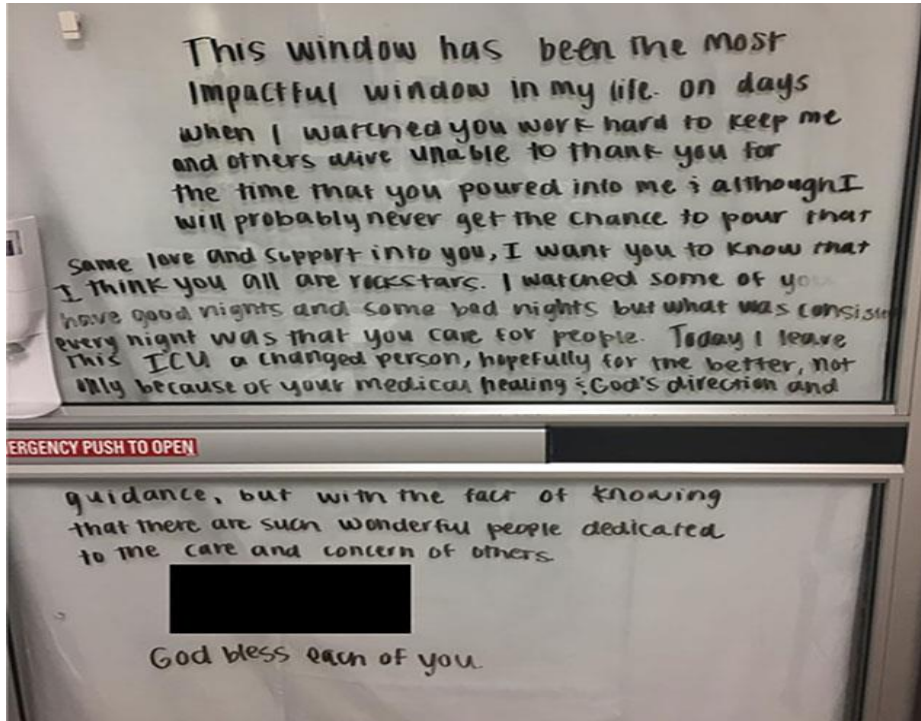 This window has been the most
Impactful window in my life. on days
when I watched you work hard to keep me
and others alive unable to thank you for
the time that you poured into me & although I
will probably never get the chance to pour that
same love and support into you, I want you to know that
I think you all are rockstars. I watched some of you
have good nights and some bad nights but what was consis
every night was that you care for people. Today I leave
This ICU a changed person, hopefully for the better, not
only because of your medical healing & God's direction and
ERGENCY PUSH TO OPEN
guidance, but with the fact of knowing
that there are such wonderful people dedicated
to the care and concern of others.
God bless each of you.